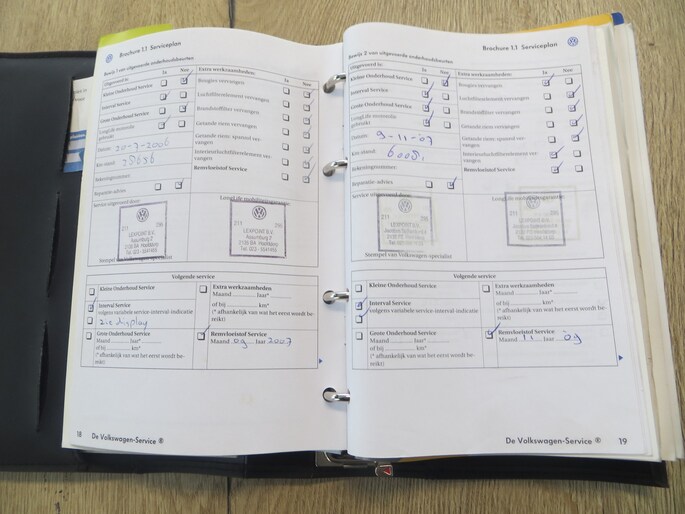 Brochure 1.1 Serviceplan
Bewijs 1 van uitgevoerde onderhoudsbeurten
Uitgevoerd is: Ja Nee
Kleine Onderhoud Service
Interval Service
Grote Onderhoud Service
LongLife motorolie
gebruikt
Datum:
Km-stand:
Rekeningnummer:
Reparatie-advies
Extra werkzaamheden: Ja Nee
Bougies vervangen
Luchtfilterelement vervangen
Brandstoffilter vervangen
Getande riem vervangen
Getande riem: spanrol ver-
vangen
Interieurluchtfilterelement ver-
vangen
Remvloeistof Service
Service uitgevoerd door:
LongLife mobiliteitsgarantie
LEXPOINT B.V.
LEXPOINT B.V.
Stempel van Volkswagen specialist
Volgende service
Kleine Onderhoud Service
Interval Service
volgens variabele service-interval-indicatie
zie display
Grote Onderhoud Service
Maand Jaar*
of bij km*
(* afhankelijk van wat het eerst wordt be-
reikt)
Extra werkzaamheden
Maand Jaar*
of bij km*
(* afhankelijk van wat het eerst wordt
bereikt)
Remvloeistof Service
Maand 09 Jaar 2007
18 De Volkswagen-Service ®
Brochure 1.1 Serviceplan
Bewijs 2 van uitgevoerde onderhoudsbeurten
Uitgevoerd is: Ja Nee
Kleine Onderhoud Service
Interval Service
Grote Onderhoud Service
LongLife motorolie
gebruikt
Datum: 9-11-07
Km-stand:
Rekeningnummer:
Reparatie-advies
Extra werkzaamheden: Ja Nee
Bougies vervangen
Luchtfilterelement vervangen
Brandstoffilter vervangen
Getande riem vervangen
Getande riem: spanrol ver-
vangen
Interieurluchtfilterelement ver-
vangen
Remvloeistof Service
Service uitgevoerd door:
LEXPOINT B.V.
LEXPOINT B.V.
Stempel van Volkswagen specialist
Volgende service
Kleine Onderhoud Service
Interval Service
volgens variabele service-interval-indicatie
Grote Onderhoud Service
Maand Jaar*
of bij km*
(* afhankelijk van wat het eerst wordt be-
reikt)
Extra werkzaamheden
Maand Jaar*
of bij km*
(* afhankelijk van wat het eerst wordt
bereikt)
Remvloeistof Service
Maand 11 Jaar 09
De Volkswagen-Service ® 19